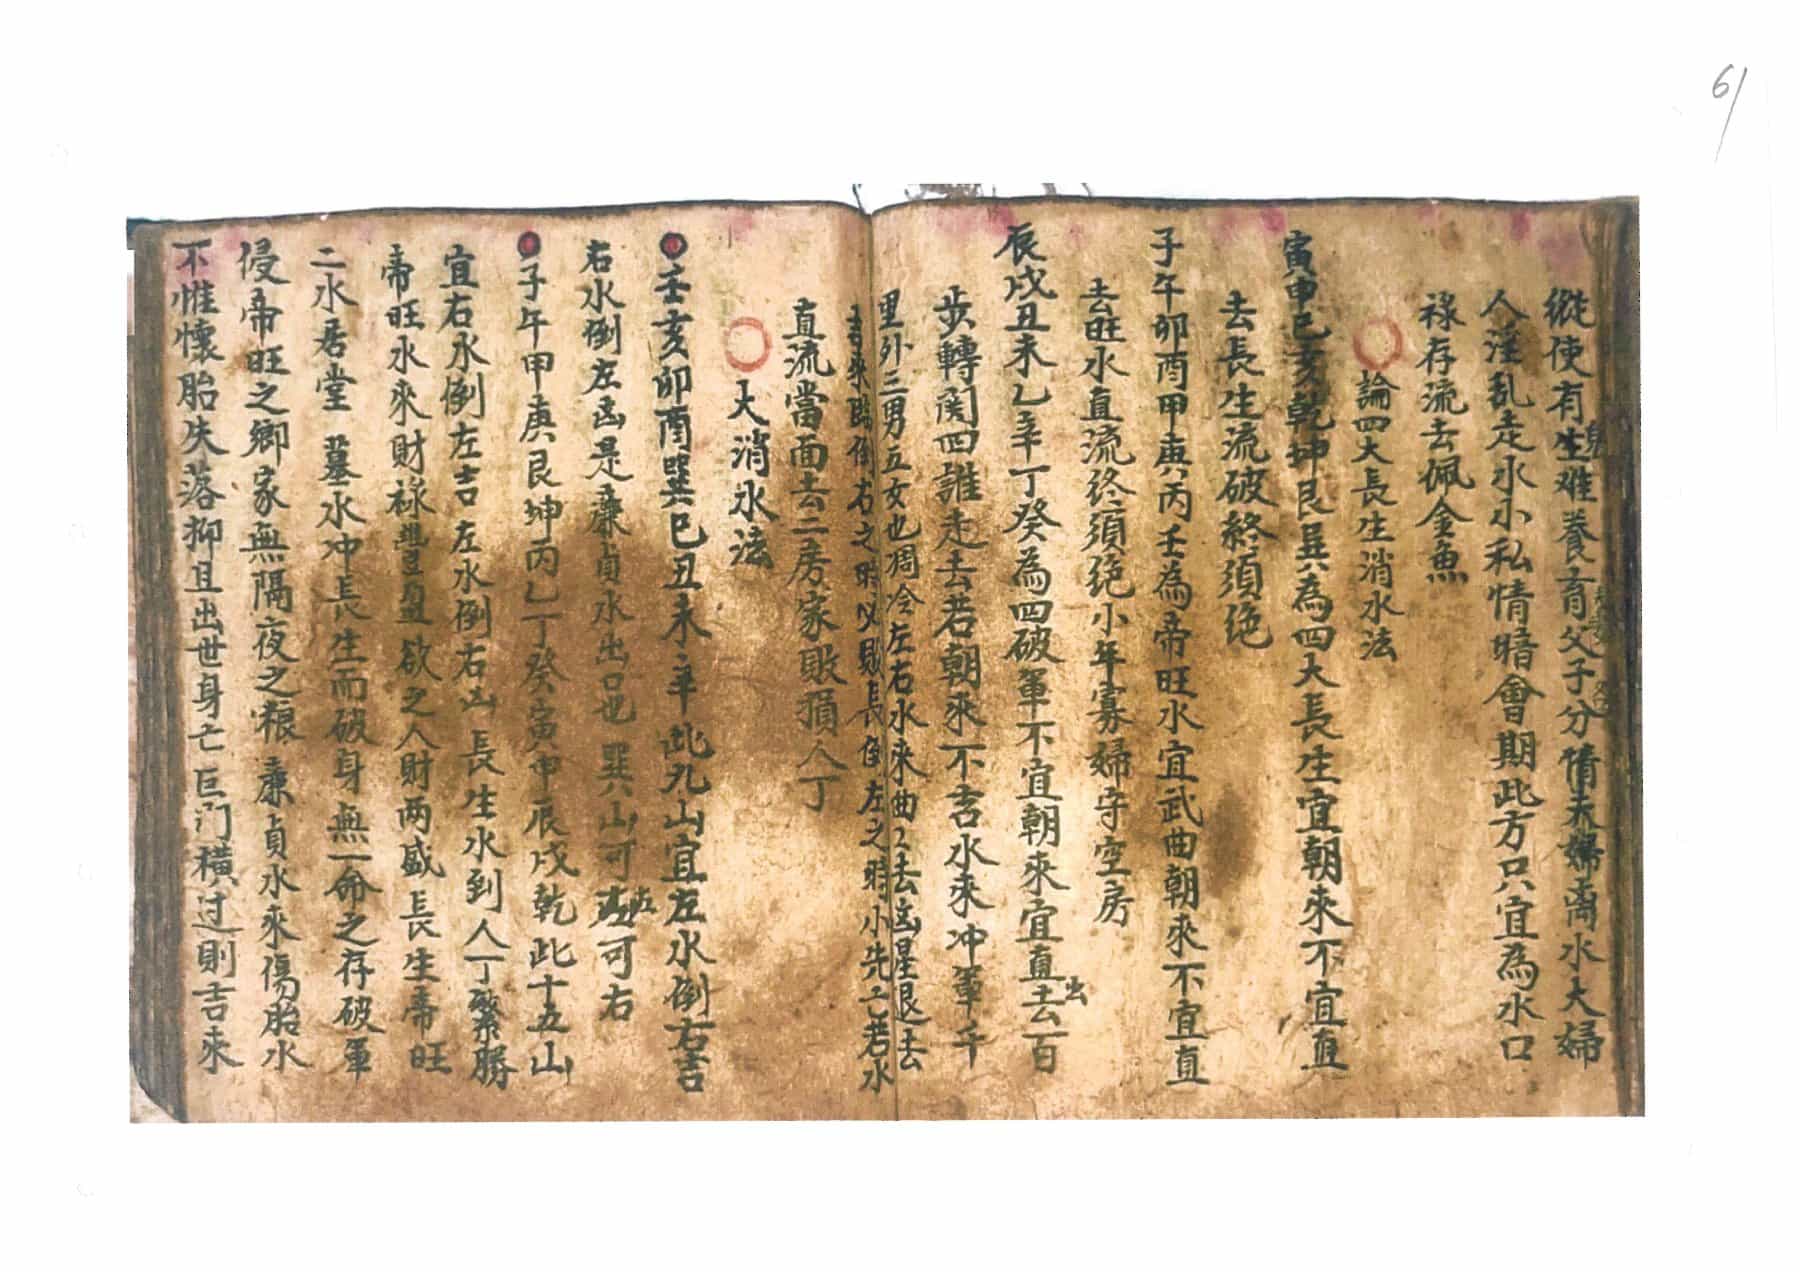 61
縱使有生难養育父子分情夫婦离水大婦
人淫乱走水小私情暗會期此方只宜為水口
祿存流去佩金魚
論四大長生消水法
寅申巳亥乾坤艮巽為四大長生宜朝來不宜直
去長生流破終須绝
子午卯酉甲庚丙壬為帝旺水宜武曲朝來不宜直
去旺水直流终須绝小年寡婦守空房
辰戌丑未乙辛丁癸為四破軍不宜朝來宜直去一百
步轉関四誰走去若朝來不吉水來冲軍千
里外三男五女也凋冷左右水來曲々去凶星退去
直流當面去二房家敗損人丁
大消水法
壬亥卯酉巽巳丑未辛此九山宜左水倒右吉
右水倒左凶是廉貞水出口也巽山可左可右
子午甲庚艮坤丙乙丁癸寅申辰戌乾此十五山
宜右水倒左吉左水倒右凶長生水到人丁繁勝
帝旺水來財祿豐盈欲之人財两盛長生帝旺
二水居堂墓水冲長生而破身無一命之存破軍
侵帝旺之鄉家無隔夜之粮廉貞水來傷胎水
不惟懷胎失落抑且出世身亡巨门横过則吉來